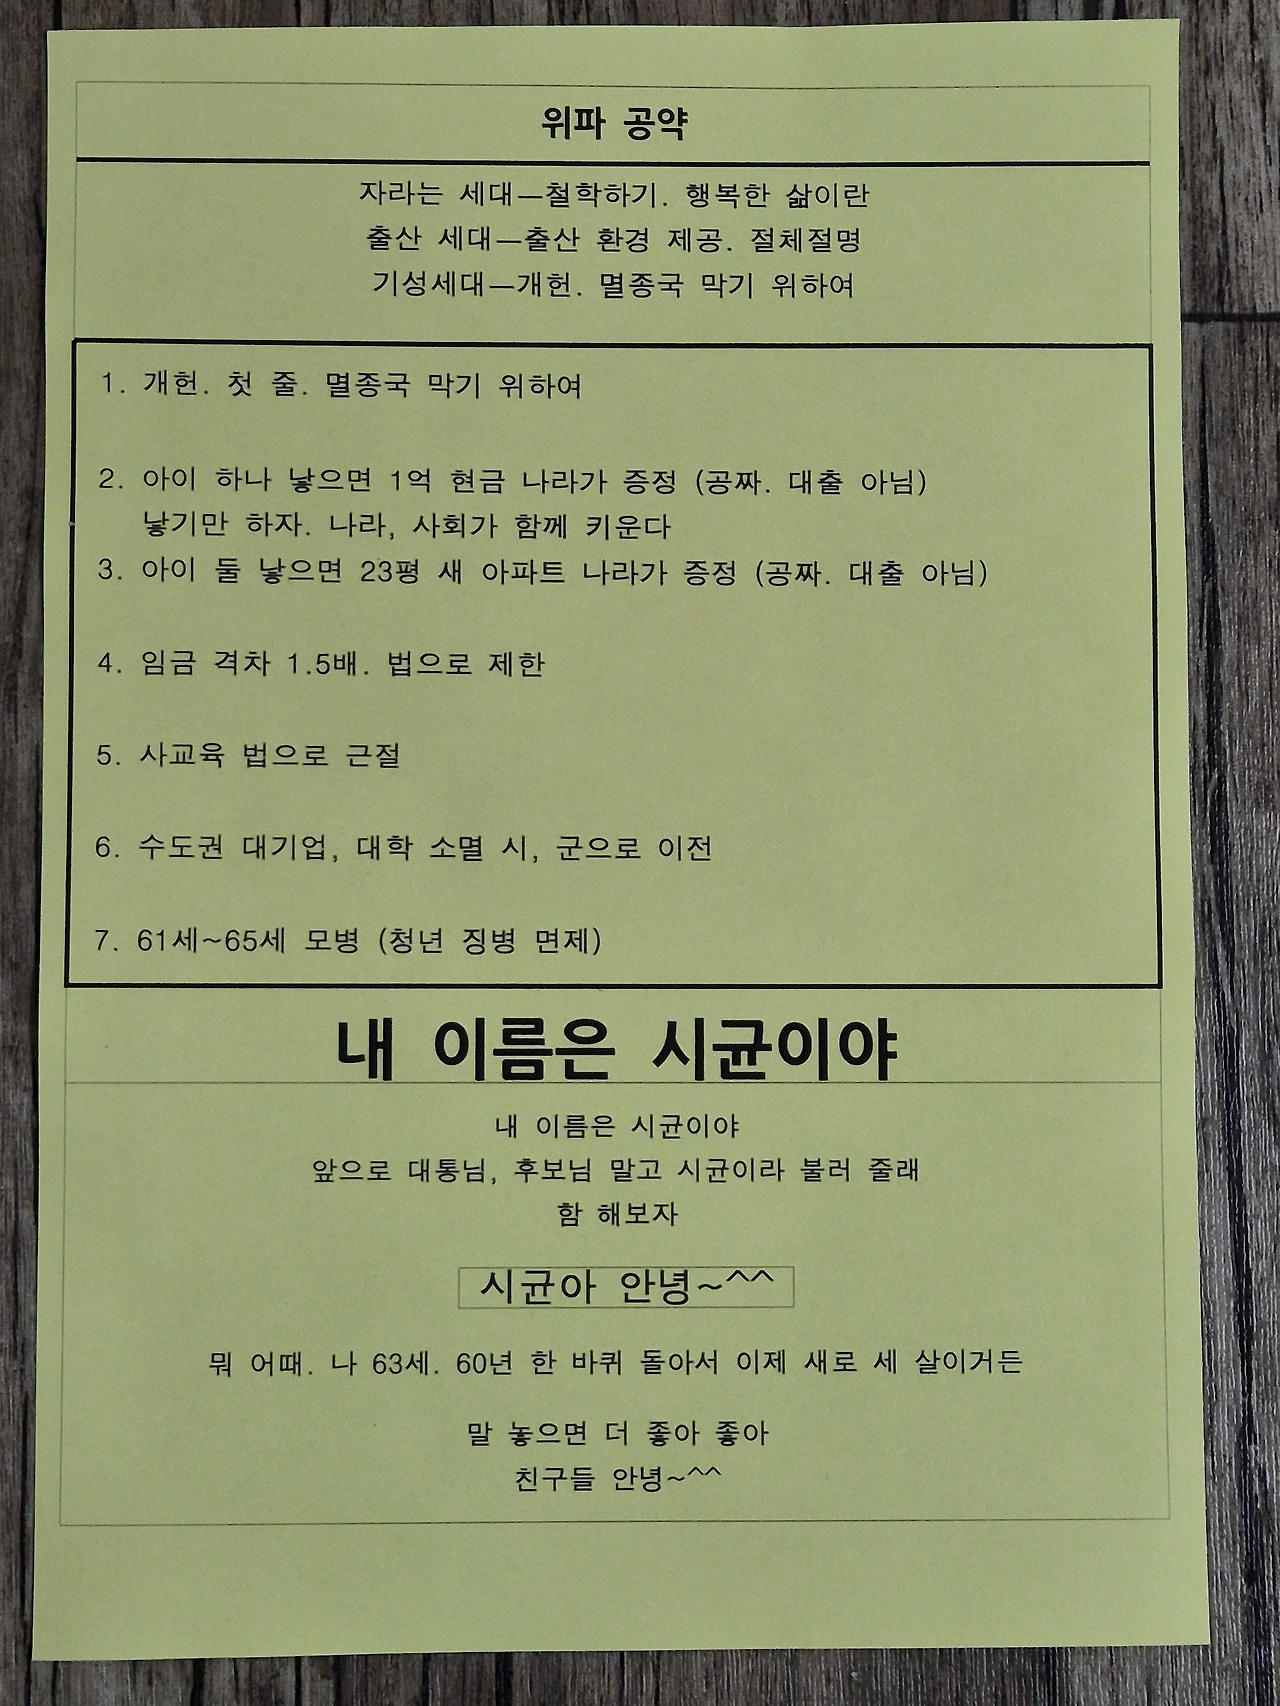 위파 공약
자라는 세대—철학하기. 행복한 삶이란
출산 세대—출산 환경 제공. 절체절명
기성세대—개헌. 멸종국 막기 위하여
1. 개헌. 첫 줄. 멸종국 막기 위하여
2. 아이 하나 낳으면 1억 현금 나라가 증정 (공짜. 대출 아님)
낳기만 하자. 나라, 사회가 함께 키운다
3. 아이 둘 낳으면 23평 새 아파트 나라가 증정 (공짜. 대출 아님)
4. 임금 격차 1.5배. 법으로 제한
5. 사교육 법으로 근절
6. 수도권 대기업, 대학 소멸 시, 군으로 이전
7. 61세~65세 모병 (청년 징병 면제)
내 이름은 시균이야
내 이름은 시균이야
앞으로 대통님, 후보님 말고 시균이라 불러 줄래
함 해보자
시균아 안녕~^^
뭐 어때. 나 63세. 60년 한 바퀴 돌아서 이제 새로 세 살이거든
말 놓으면 더 좋아 좋아
친구들 안녕~^^